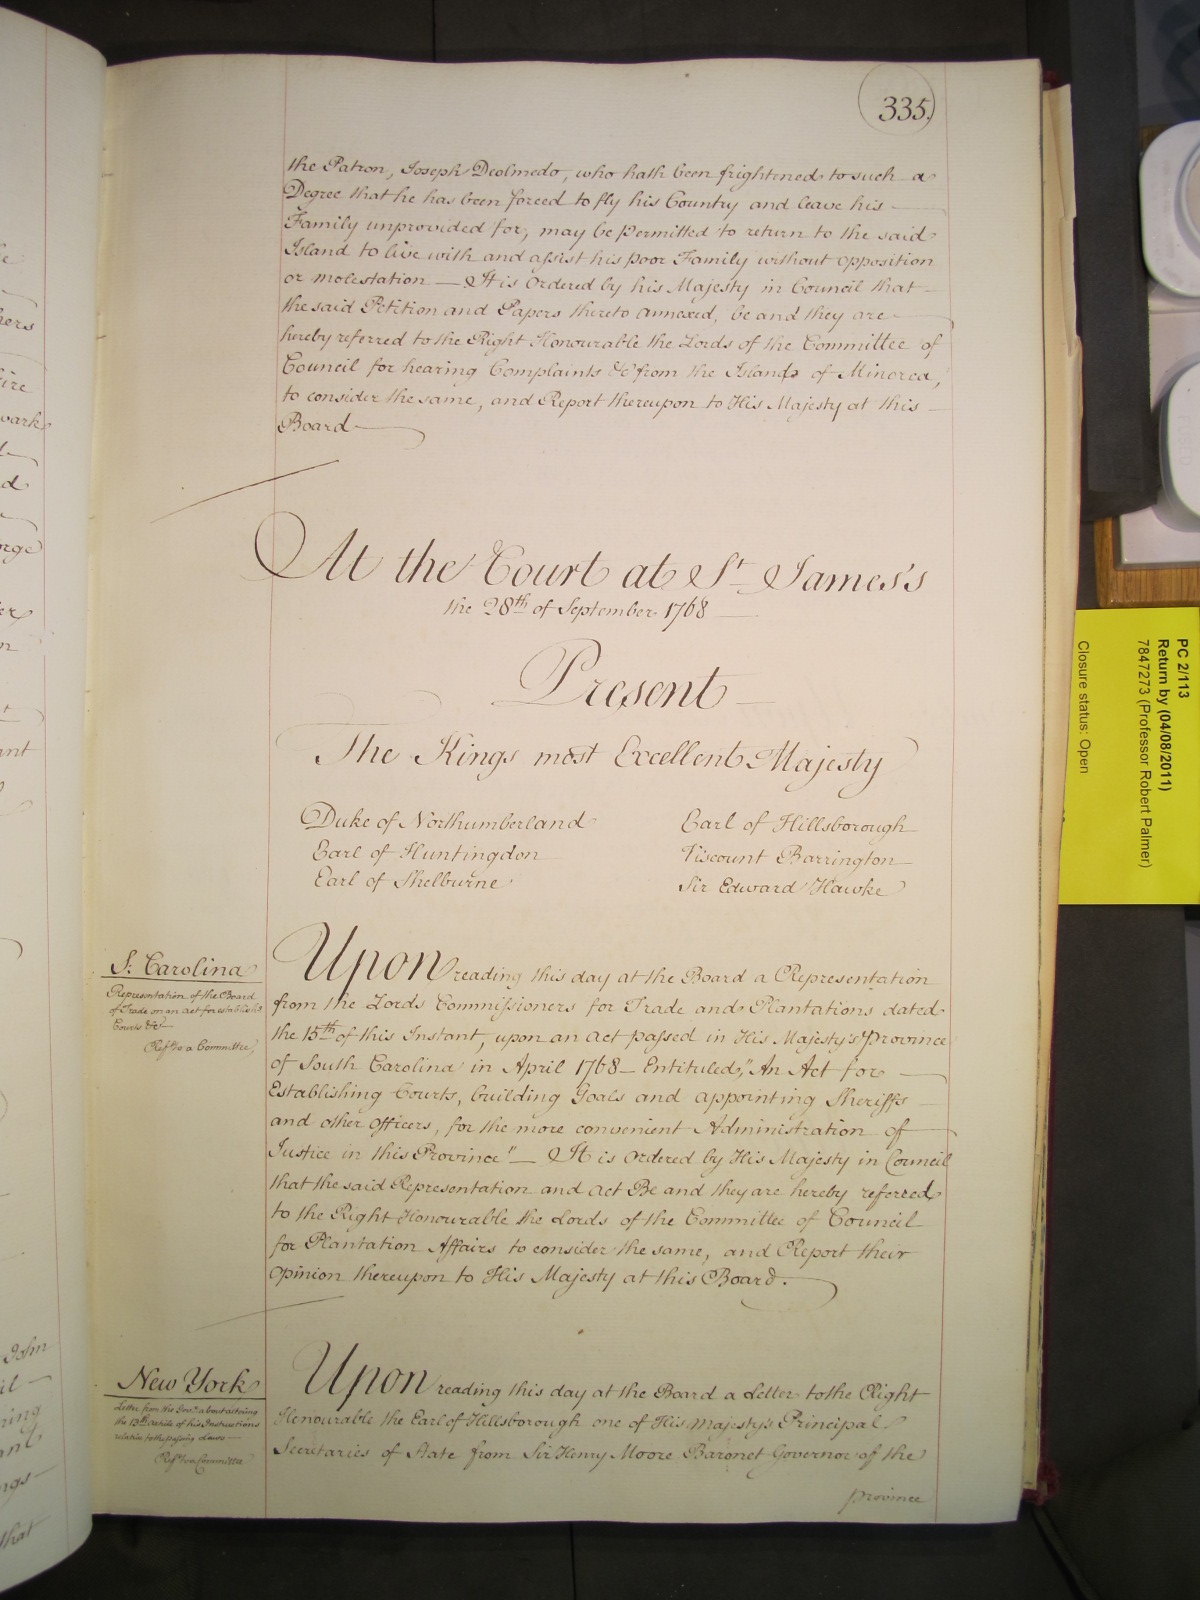 335.
the Patron, Joseph Deolmedo, who hath been frightned to such a
Degree that he has been forced to fly his Country and leave his
Family unprovided for, may be permitted to return to the said
Island to live with and assist his poor Family without opposition
or molestation — It is Ordered by his Majesty in Council that
the said Petition and Papers thereto annexed, be and they are
hereby referred to the Right Honourable the Lords of the Committee of
Council for hearing Complaints &c from the Island of Minorca,
to consider the same, and Report thereupon to His Majesty at this
Board
At the Court at St. James's
the 28th of September 1768
Present
The Kings most Excellent Majesty
Duke of Northumberland
Earl of Huntingdon
Earl of Shelburne
Earl of Hillsborough
Viscount Barrington
Sir Edward Hawke
S. Carolina
Representation of the Board
of Trade on an Act for establish.g
Courts &c
Ref.d to a Committee
Upon reading this day at the Board a Representation
from the Lords Commissioners for Trade and Plantations dated
the 15th of this Instant, upon an Act passed in His Majesty's Province
of South Carolina in April 1768 — Entituled, "An Act for
Establishing Courts, building Goals and appointing Sheriffs
and other Officers, for the more convenient Administration of
Justice in this Province" — It is Ordered by His Majesty in Council
that the said Representation and Act Be and they are hereby referred
to the Right Honourable the Lords of the Committee of Council
for Plantation Affairs to consider the same, and Report their
Opinion thereupon to His Majesty at this Board.
New York
Letter from the Gov.r about altering
the 13th Article of his Instructions
relative to the passing of Laws
Ref.d to a Committee
Upon reading this day at the Board a Letter to the Right
Honourable the Earl of Hillsborough one of His Majesty's Principal
Secretaries of State from Sir Henry Moore Baronet Governor of the
province
PC 2/113
Return by (04/08/2011)
7847273 (Professor Robert Palmer)
Closure status: Open